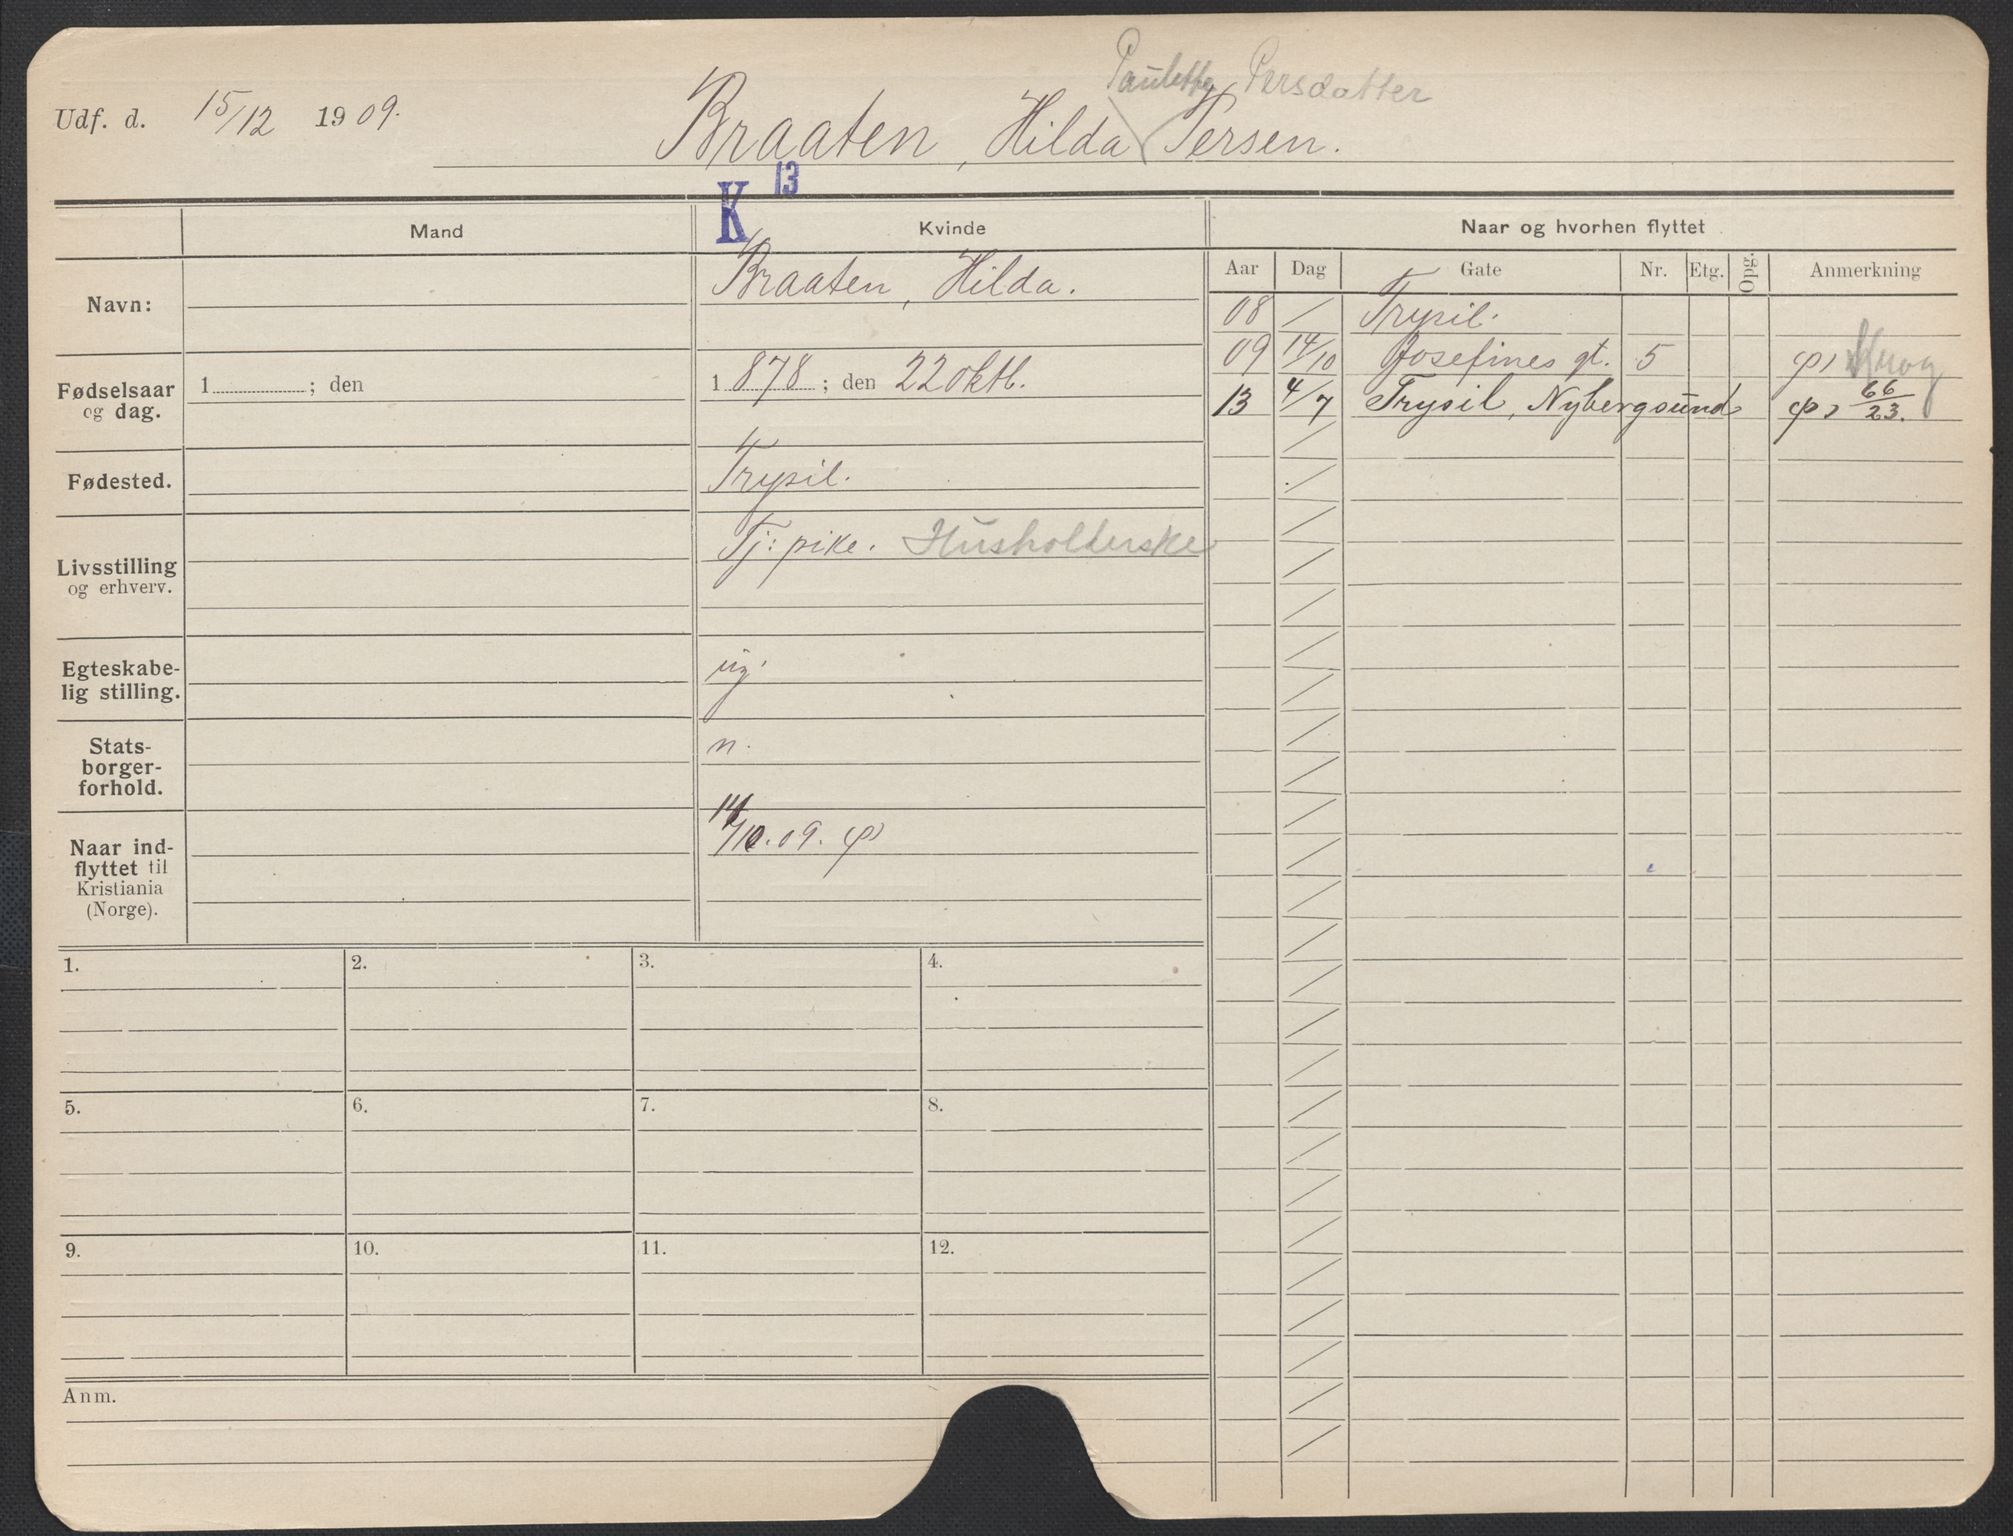 Paulette Persdatter
Udf. d. 15/12 1909. Braaten, Hilda Persen.
K 13
Mand Kvinde Naar og hvorhen flyttet
Aar Dag Gate Nr. Etg. Opg. Anmerkning
Navn: Braaten, Hilda.
08 / Trysil.
09 14/10 Josefines gt. 5 Krog
13 4/7 Trysil, Nybergsund 66/23.
Fødselsaar og dag. 1 ; den 1878 ; den 22 oktb.
Fødested. Trysil.
Livsstilling og erhverv. Tj: pike. Husholderske
Egteskabe-
lig stilling. ug.
Stats-
borger-
forhold. n.
Naar ind-
flyttet til
Kristiania
(Norge). 14/10.09.
1. 2. 3. 4.
5. 6. 7. 8.
9. 10. 11. 12.
Anm.